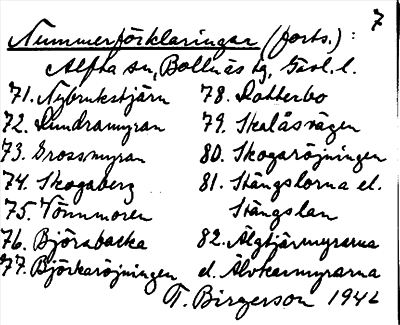 7
Nummerförklaringar (forts.):
Alfta sn, Bollnäs tg, Gävl. l.
71. Nybrukstjärn
72. Lundramyran
73. Grossmyran
74. Skogaberg
75. Tömmoren
76. Björsbacka
77. Björkaröjningen
78. Lotterbo
79. Skalåsvägen
80. Skogaröjningen
81. Stängslorna el.
Stängslan
82. Älgtjärmyrarna
el. Älvkarmyrarna
T. Birgerson 1942